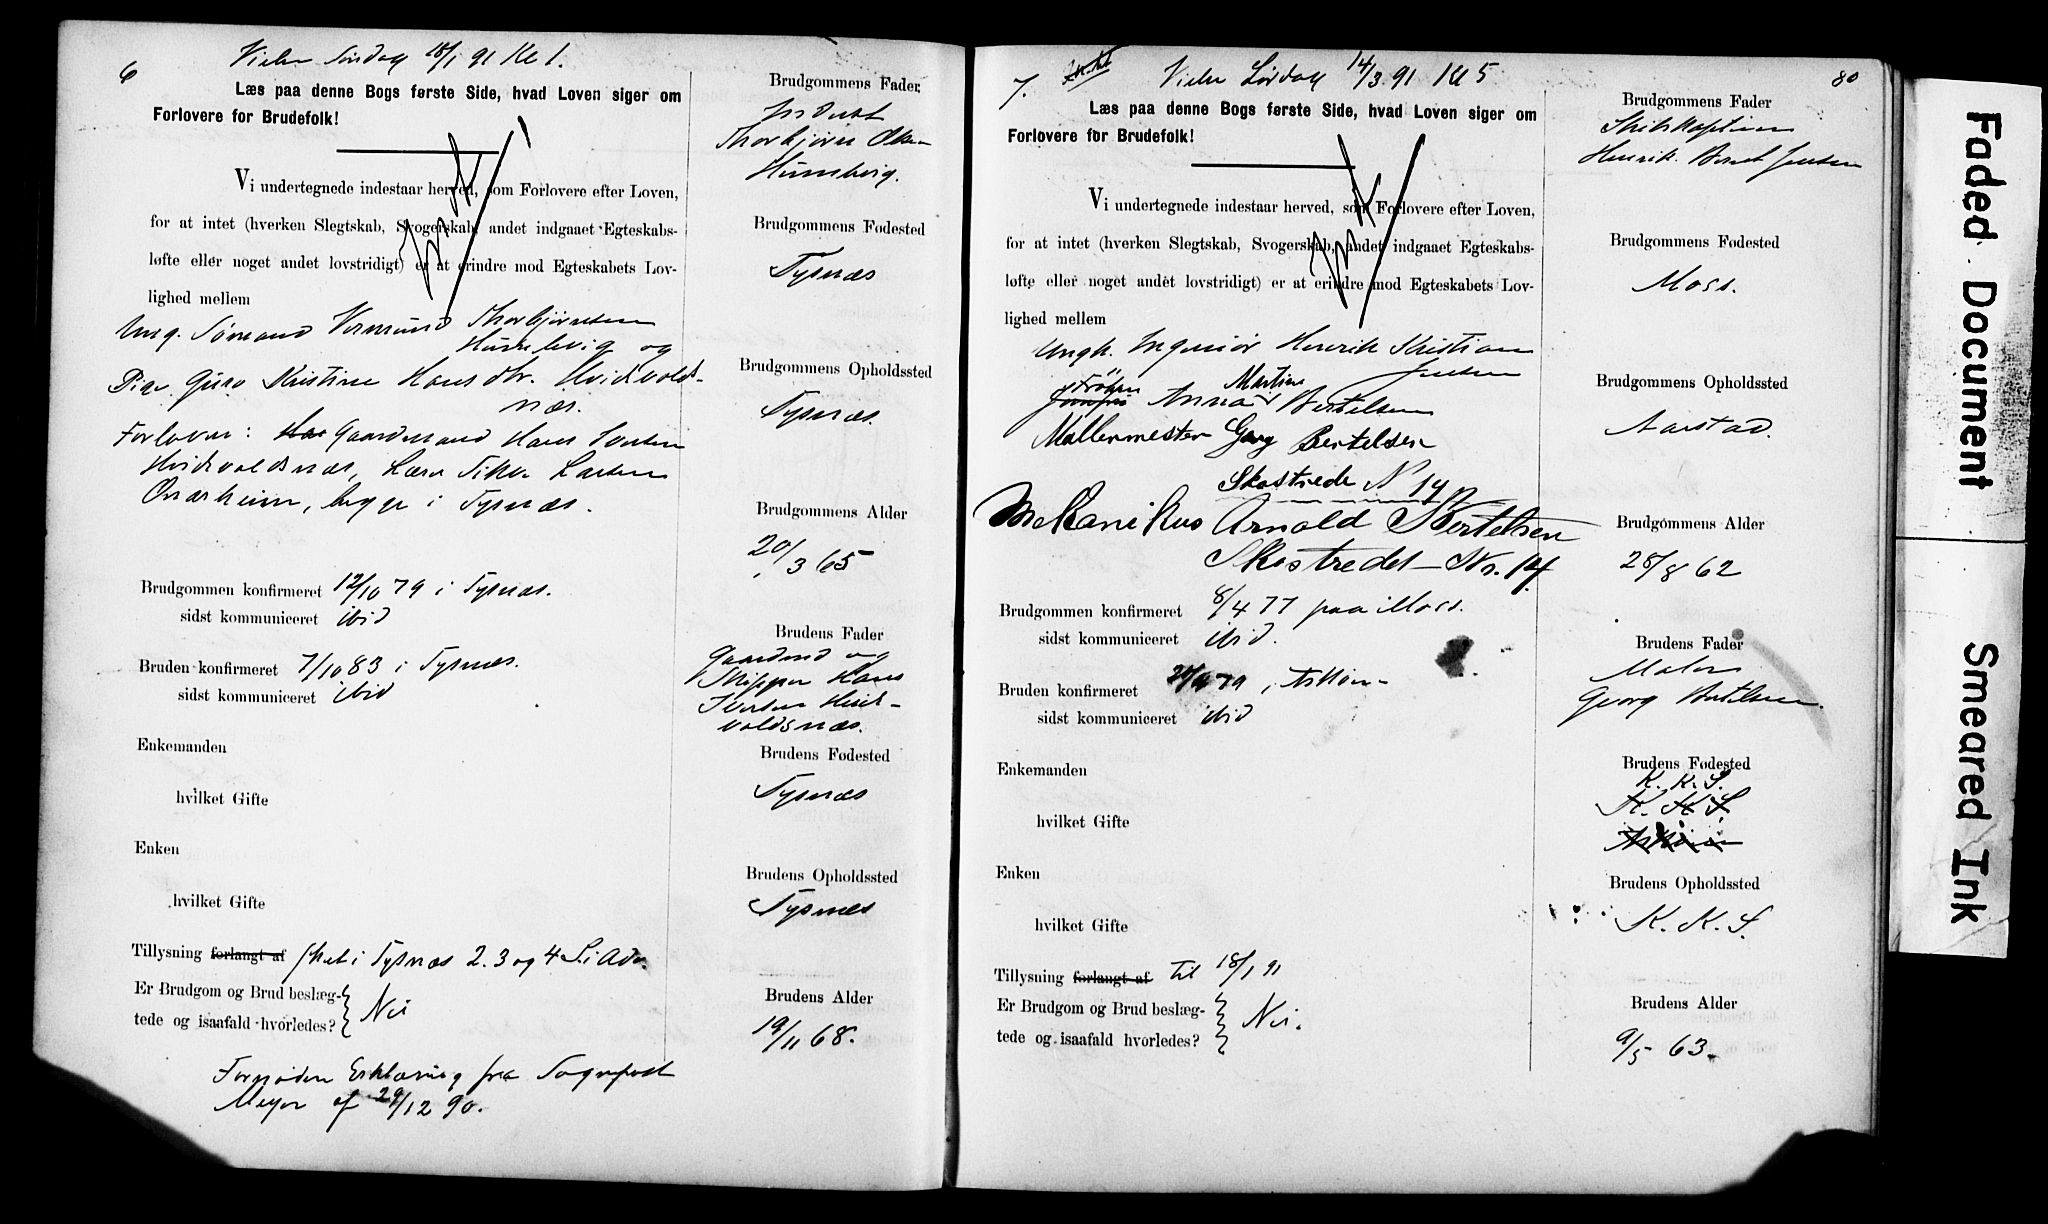 6
Vielse Søndag 18/1 91 Kl 1.
Læs paa denne Bogs første Side, hvad Loven siger om
Forlovere for Brudefolk!
Vi undertegnede indestaar herved, som Forlovere efter Loven,
for at intet (hverken Slegtskab, Svogerskab, andet indgaaet Egteskabs-
løfte eller noget andet lovstridigt) er at erindre mod Egteskabets Lov-
lighed mellem
Ung. Sømand Vermund Thorbjørnsen
Hummelvig og
Pige Guro Kristine Hansdtr. Hvidvolds-
næs.
Forlovere: Gaardmand Hans Iversen
Hvidvoldsnæs, Larsen
Onarheim, begge i Tysnæs.
Brudgommen konfirmeret 12/10 79 i Tysnæs.
sidst kommuniceret ibid
Bruden konfirmeret 7/10 83 i Tysnæs.
sidst kommuniceret ibid
Enkemanden
hvilket Gifte
Enken
hvilket Gifte
Tillysning forlangt af sket i Tysnæs 2. 3 og 4 S. i Adv.
Er Brudgom og Brud beslæg-
tede og isaafald hvorledes? Nei
Fornøden Erklæring fra Sognepræst
Meyer af 29/12 90.
Brudgommens Fader
Thorbjørn Olsen
Brudgommens Fødested
Tysnæs
Brudgommens Opholdssted
Tysnæs.
Brudgommens Alder
20/3 65
Brudens Fader
Gaardmd og
Skipper Hans
Iversen Hvid-
voldsnæs.
Brudens Fødested
Tysnæs
Brudens Opholdssted
Tysnæs
Brudens Alder
19/11 68.
7.
Vielse Lørdag 14/3 91 Kl 5
80
Læs paa denne Bogs første Side, hvad Loven siger om
Forlovere for Brudefolk!
Vi undertegnede indestaar herved, som Forlovere efter Loven,
for at intet (hverken Slegtskab, Svogerskab, andet indgaaet Egteskabs-
løfte eller noget andet lovstridigt) er at erindre mod Egteskabets Lov-
lighed mellem
Ungk. Ingeniør Henrik Kristian
Jensen
Frøken Anna Martine Bertelsen
Mallermester Georg Bertelsen
Skostrede N 14
Mekanikus Arnold Bertelsen
Skostredet Nr. 14.
Brudgommen konfirmeret 8/4 77 paa Moss.
sidst kommuniceret ibid.
Bruden konfirmeret 79 i Askøen
sidst kommuniceret ibid
Enkemanden
hvilket Gifte
Enken
hvilket Gifte
Tillysning forlangt af til 18/1 91
Er Brudgom og Brud beslæg-
tede og isaafald hvorledes? Nei.
Brudgommens Fader
Skibskaptein
Henrik Bernt Jensen
Brudgommens Fødested
Moss.
Brudgommens Opholdssted
Aarstad.
Brudgommens Alder
28/8 62
Brudens Fader
Maler
Georg Bertelsen.
Brudens Fødested
K. K. S.
K. K. S.
Askøen
Brudens Opholdssted
K. K. S.
Brudens Alder
9/5 63.
Faded Document
Smeared Ink